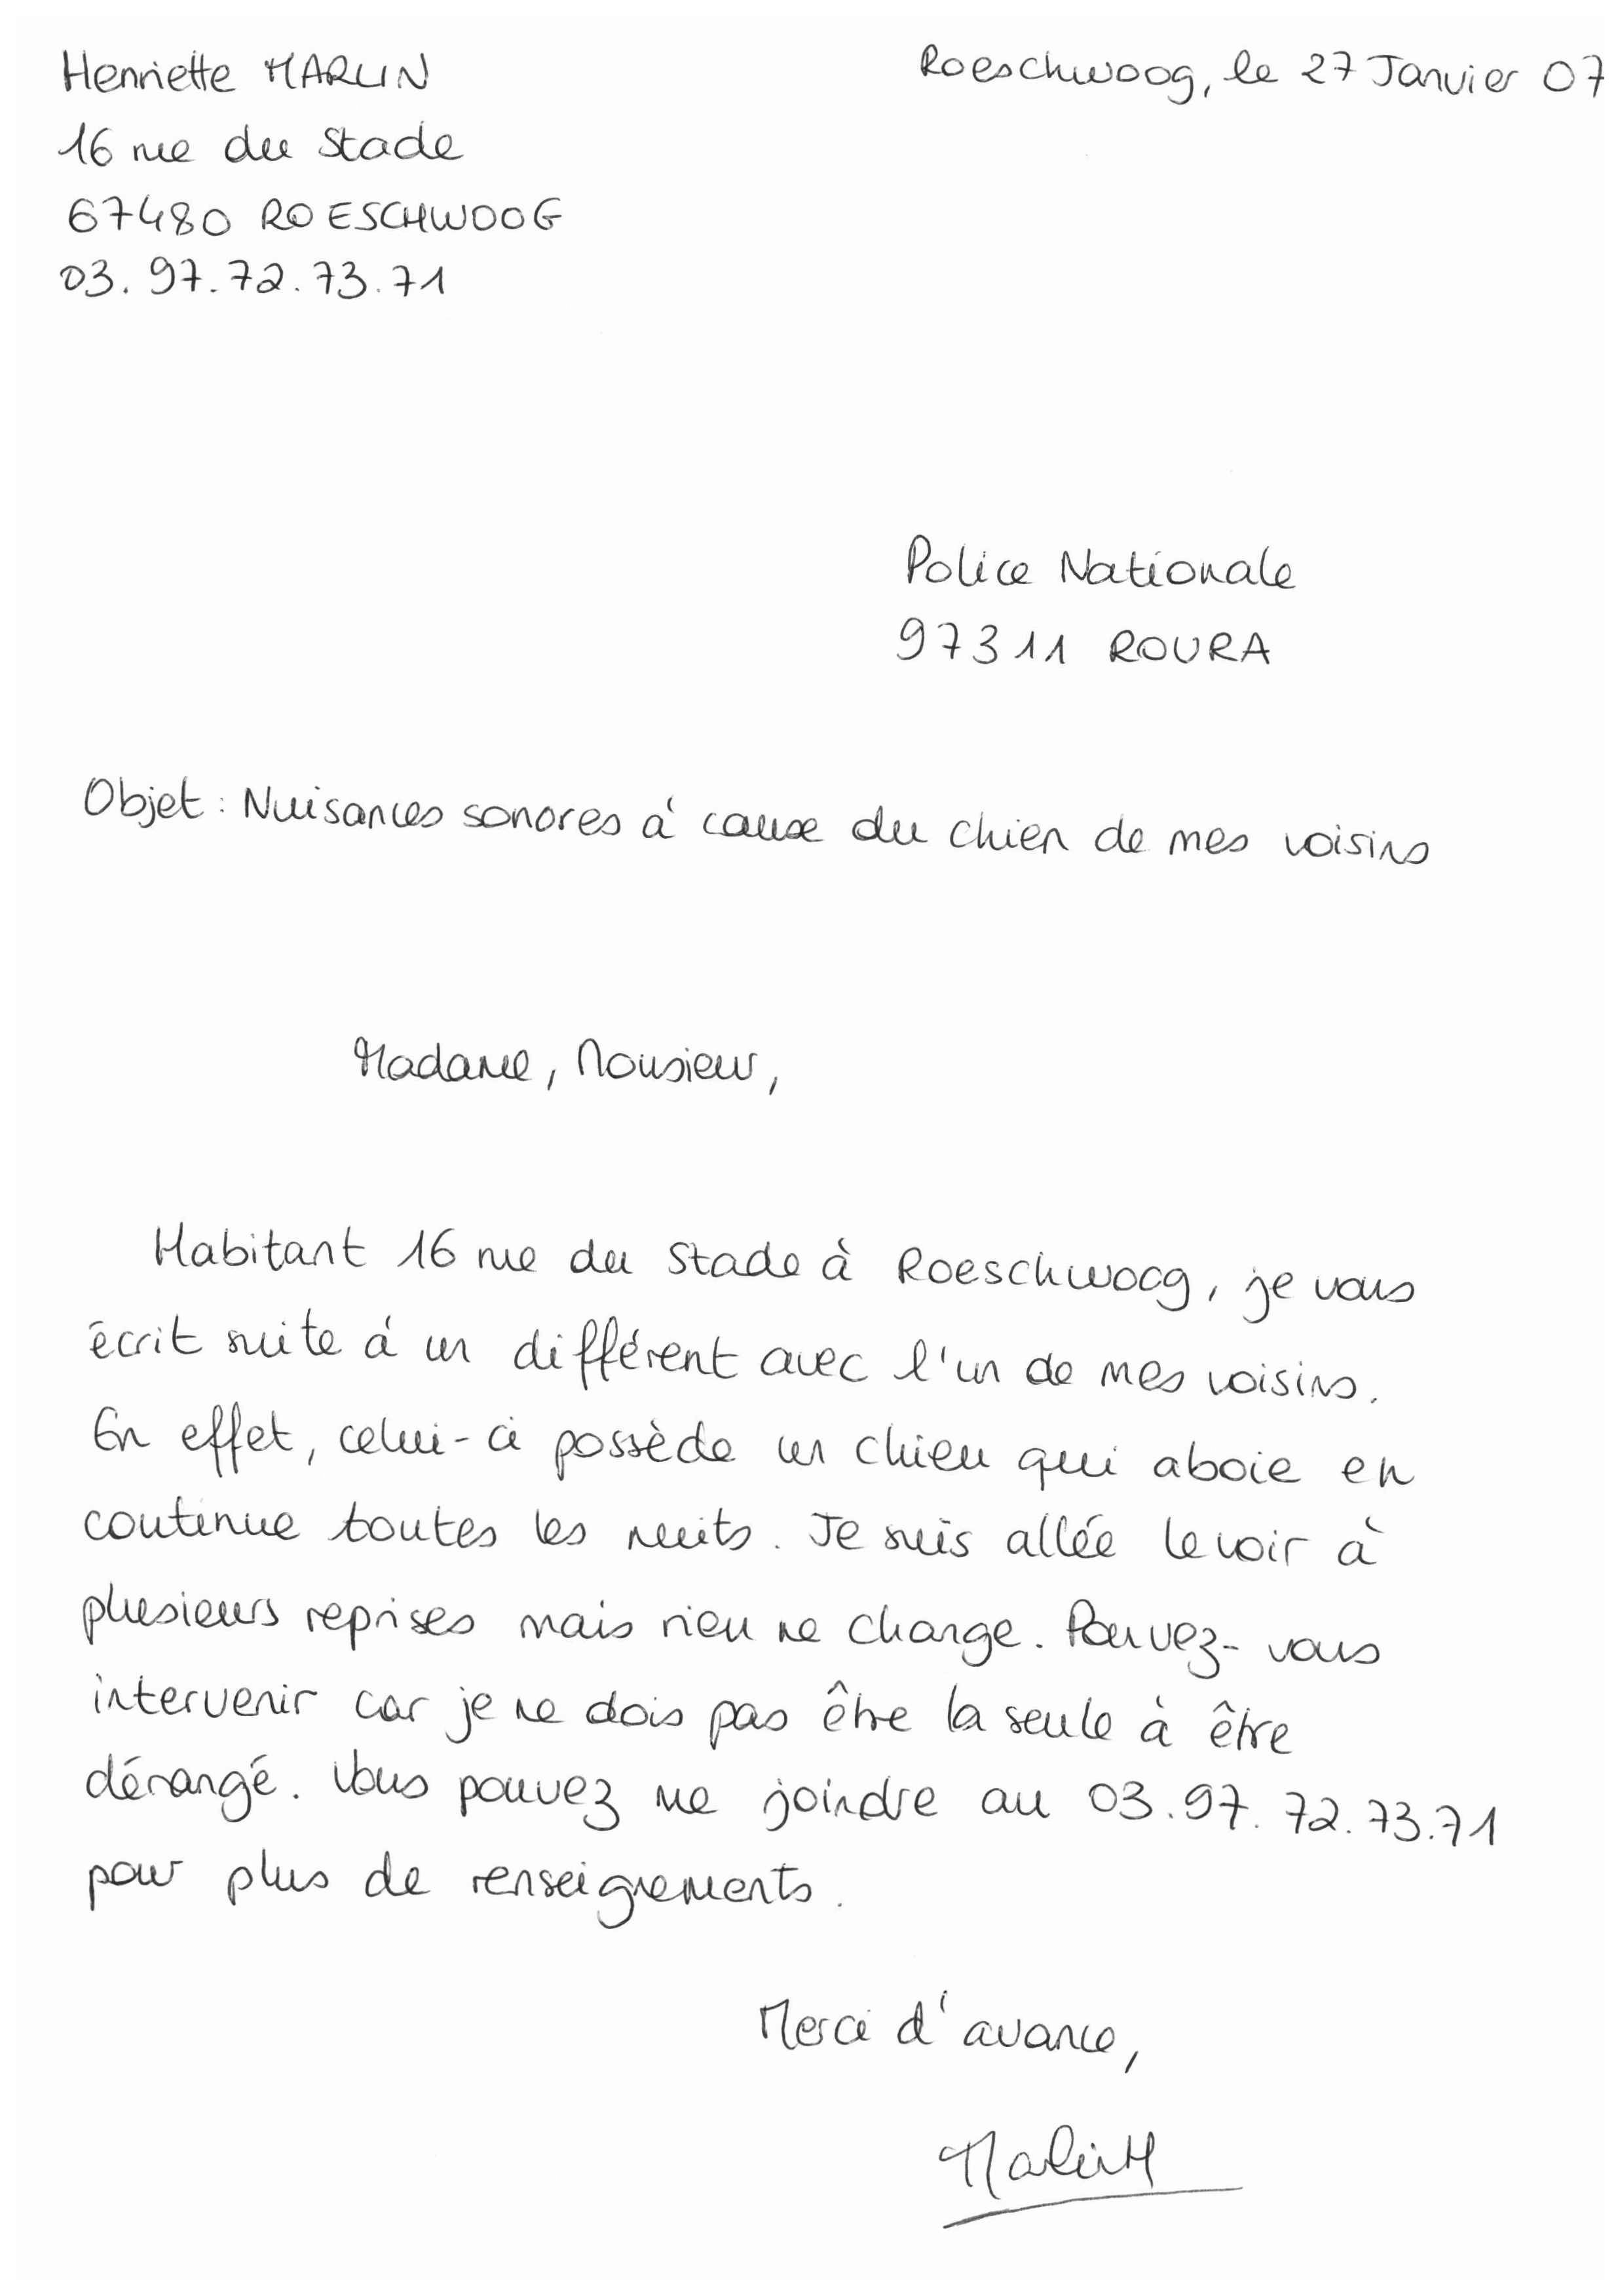 Henriette MARLIN
Roeschwoog, le 27 Janvier 07
16 rue du Stade
67480 ROESCHWOOG
03.97.72.73.71
Police Nationale
97311 ROURA
Objet : Nuisances sonores à cause du chien de mes voisins
Madame, Monsieur,
Habitant 16 rue du Stade à Roeschwoog, je vous
écrit suite à un différent avec l'un de mes voisins.
En effet, celui-ci possède un chien qui aboie en
continue toutes les nuits. Je suis allée le voir à
plusieurs reprises mais rien ne change. Pouvez-vous
intervenir car je ne dois pas être la seule à être
dérangé. Vous pouvez me joindre au 03.97.72.73.71
pour plus de renseignements.
Merci d'avance,